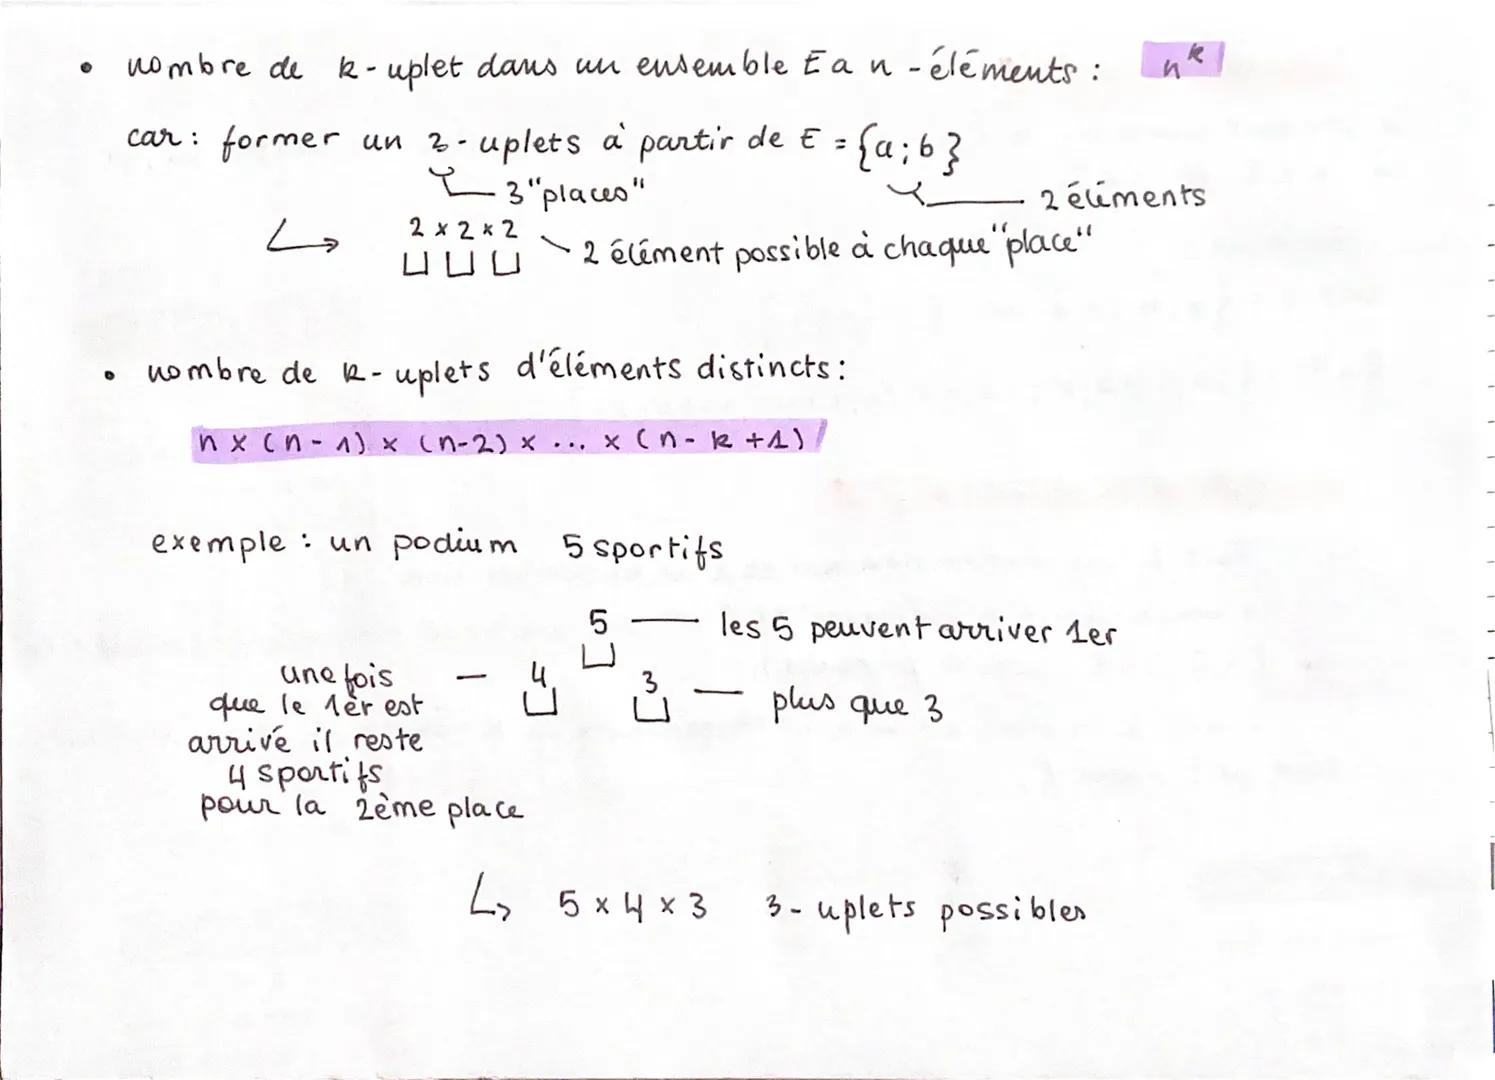 • nombre de k-uplet dans un ensemble E a n-éléments : n^k
car : former un 3-uplets à partir de E = {a;b}
3 "places"
2 éléments
↳ 2 x 2 x 2
2 élément possible à chaque "place"
• nombre de k-uplets d'éléments distincts :
n x (n-1) x (n-2) x ... x (n-k+1)
exemple : un podium 5 sportifs
5 — les 5 peuvent arriver 1er
une fois — 4
3 — plus que 3
que le 1er est
arrivé il reste
4 sportifs
pour la 2ème place
↳ 5 x 4 x 3 3-uplets possibles